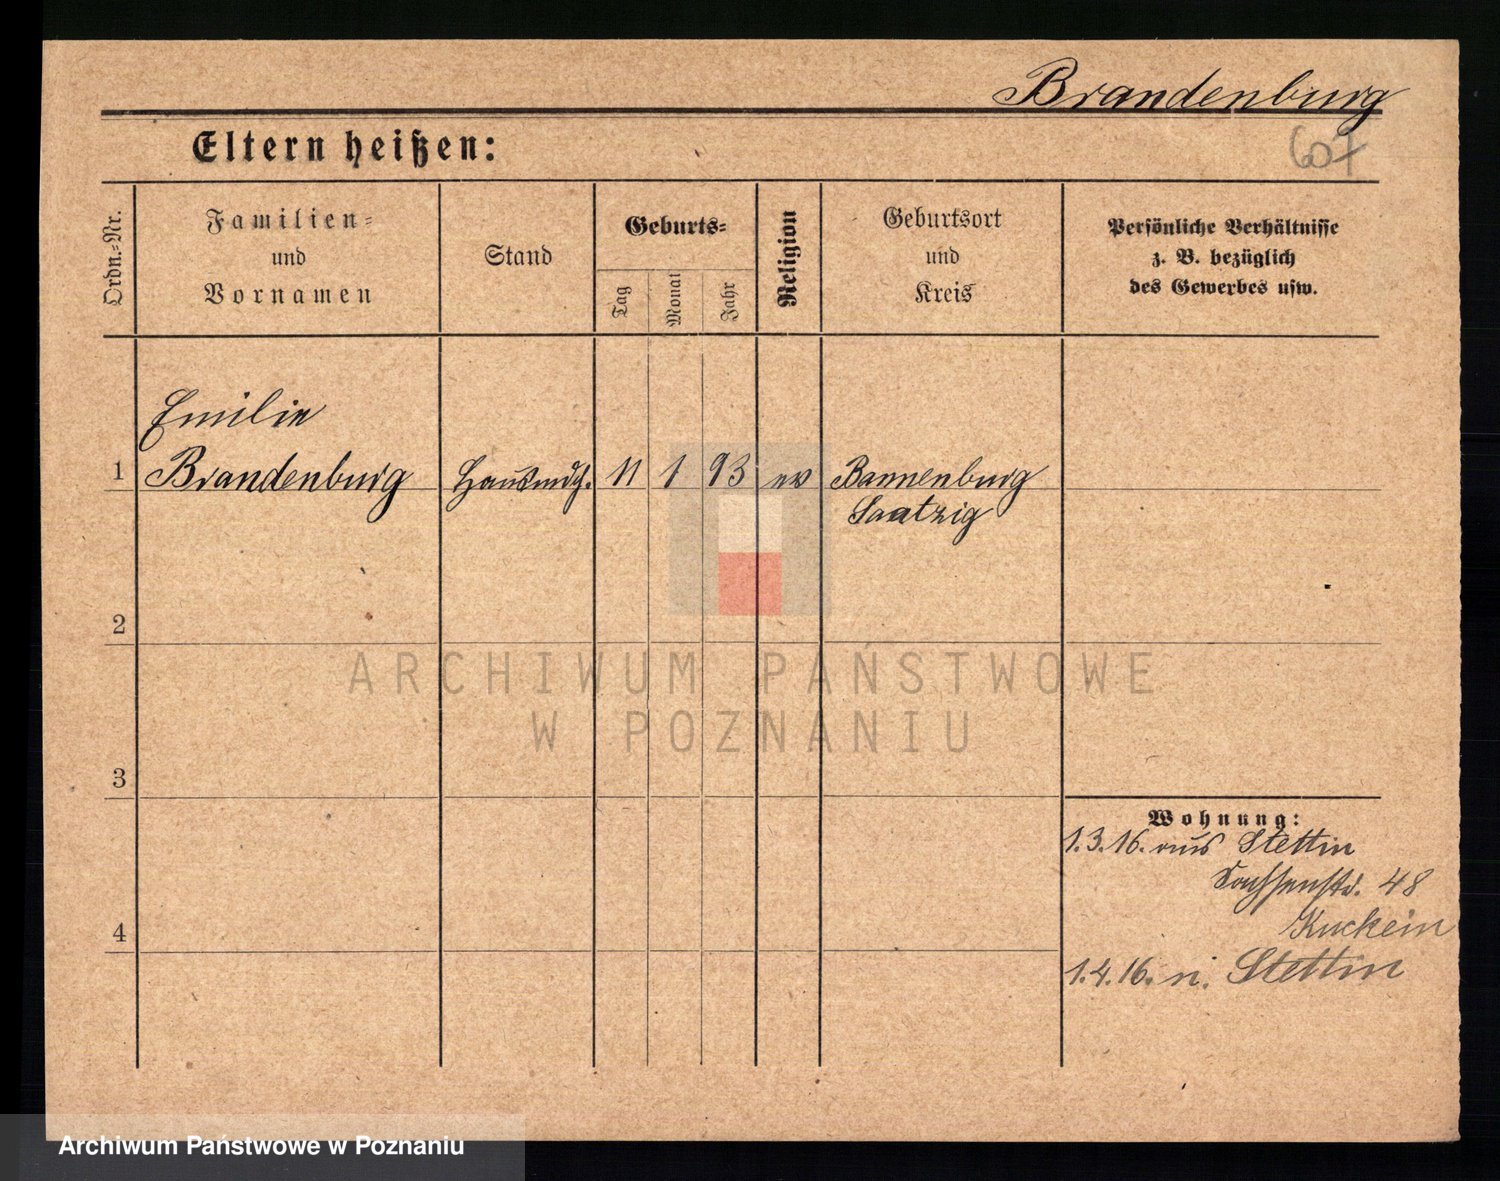 Brandenburg
607
Eltern heißen:
Ordn.-Nr.
Familien-
und
Vornamen
Stand
Geburts-
Tag
Monat
Jahr
Religion
Geburtsort
und
Kreis
Persönliche Verhältnisse
z. B. bezüglich
des Gewerbes usw.
Emilie
1 Brandenburg Hausmdch. 11 1 93 ev Bannenburg
Saatzig
2
ARCHIWUM PAŃSTWOWE
W POZNANIU
3
Wohnung:
1.3.16. aus Stettin
Sachsenstr. 48
Kuckein
4
1.4.16. n. Stettin
Archiwum Państwowe w Poznaniu